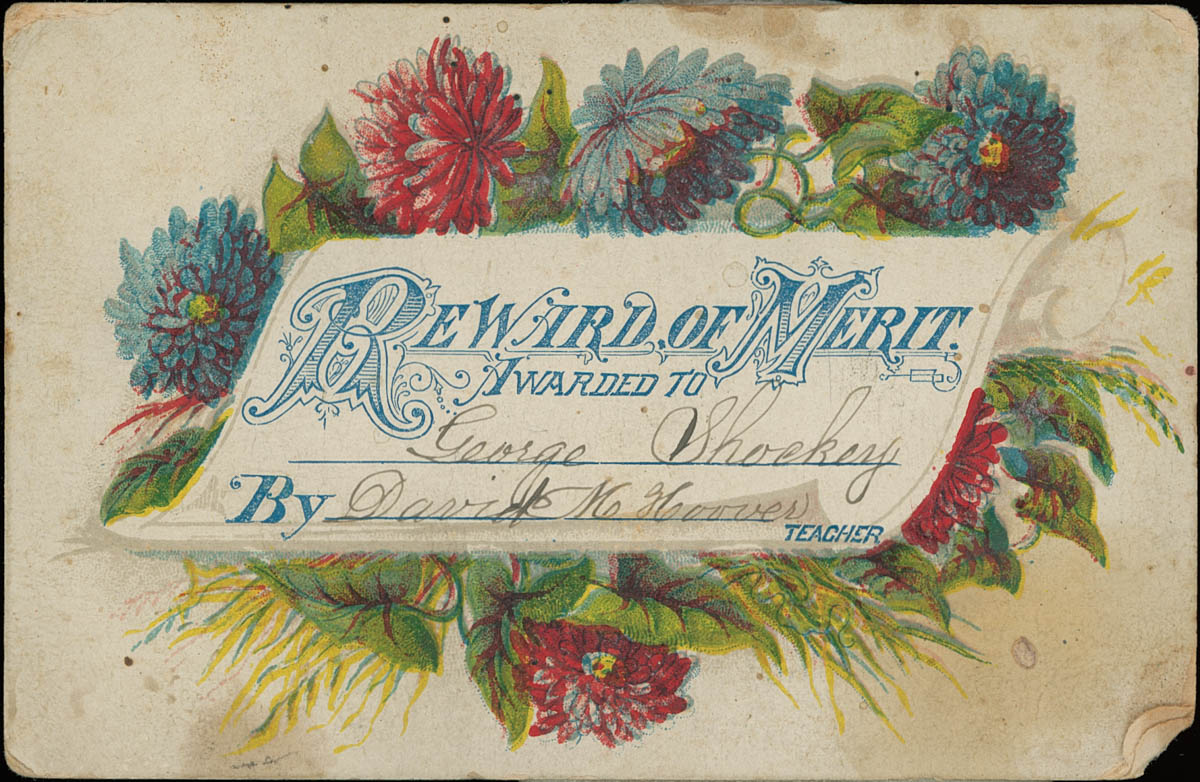 REWARD OF MERIT.
AWARDED TO
George Shockey
By David M Hoover
TEACHER